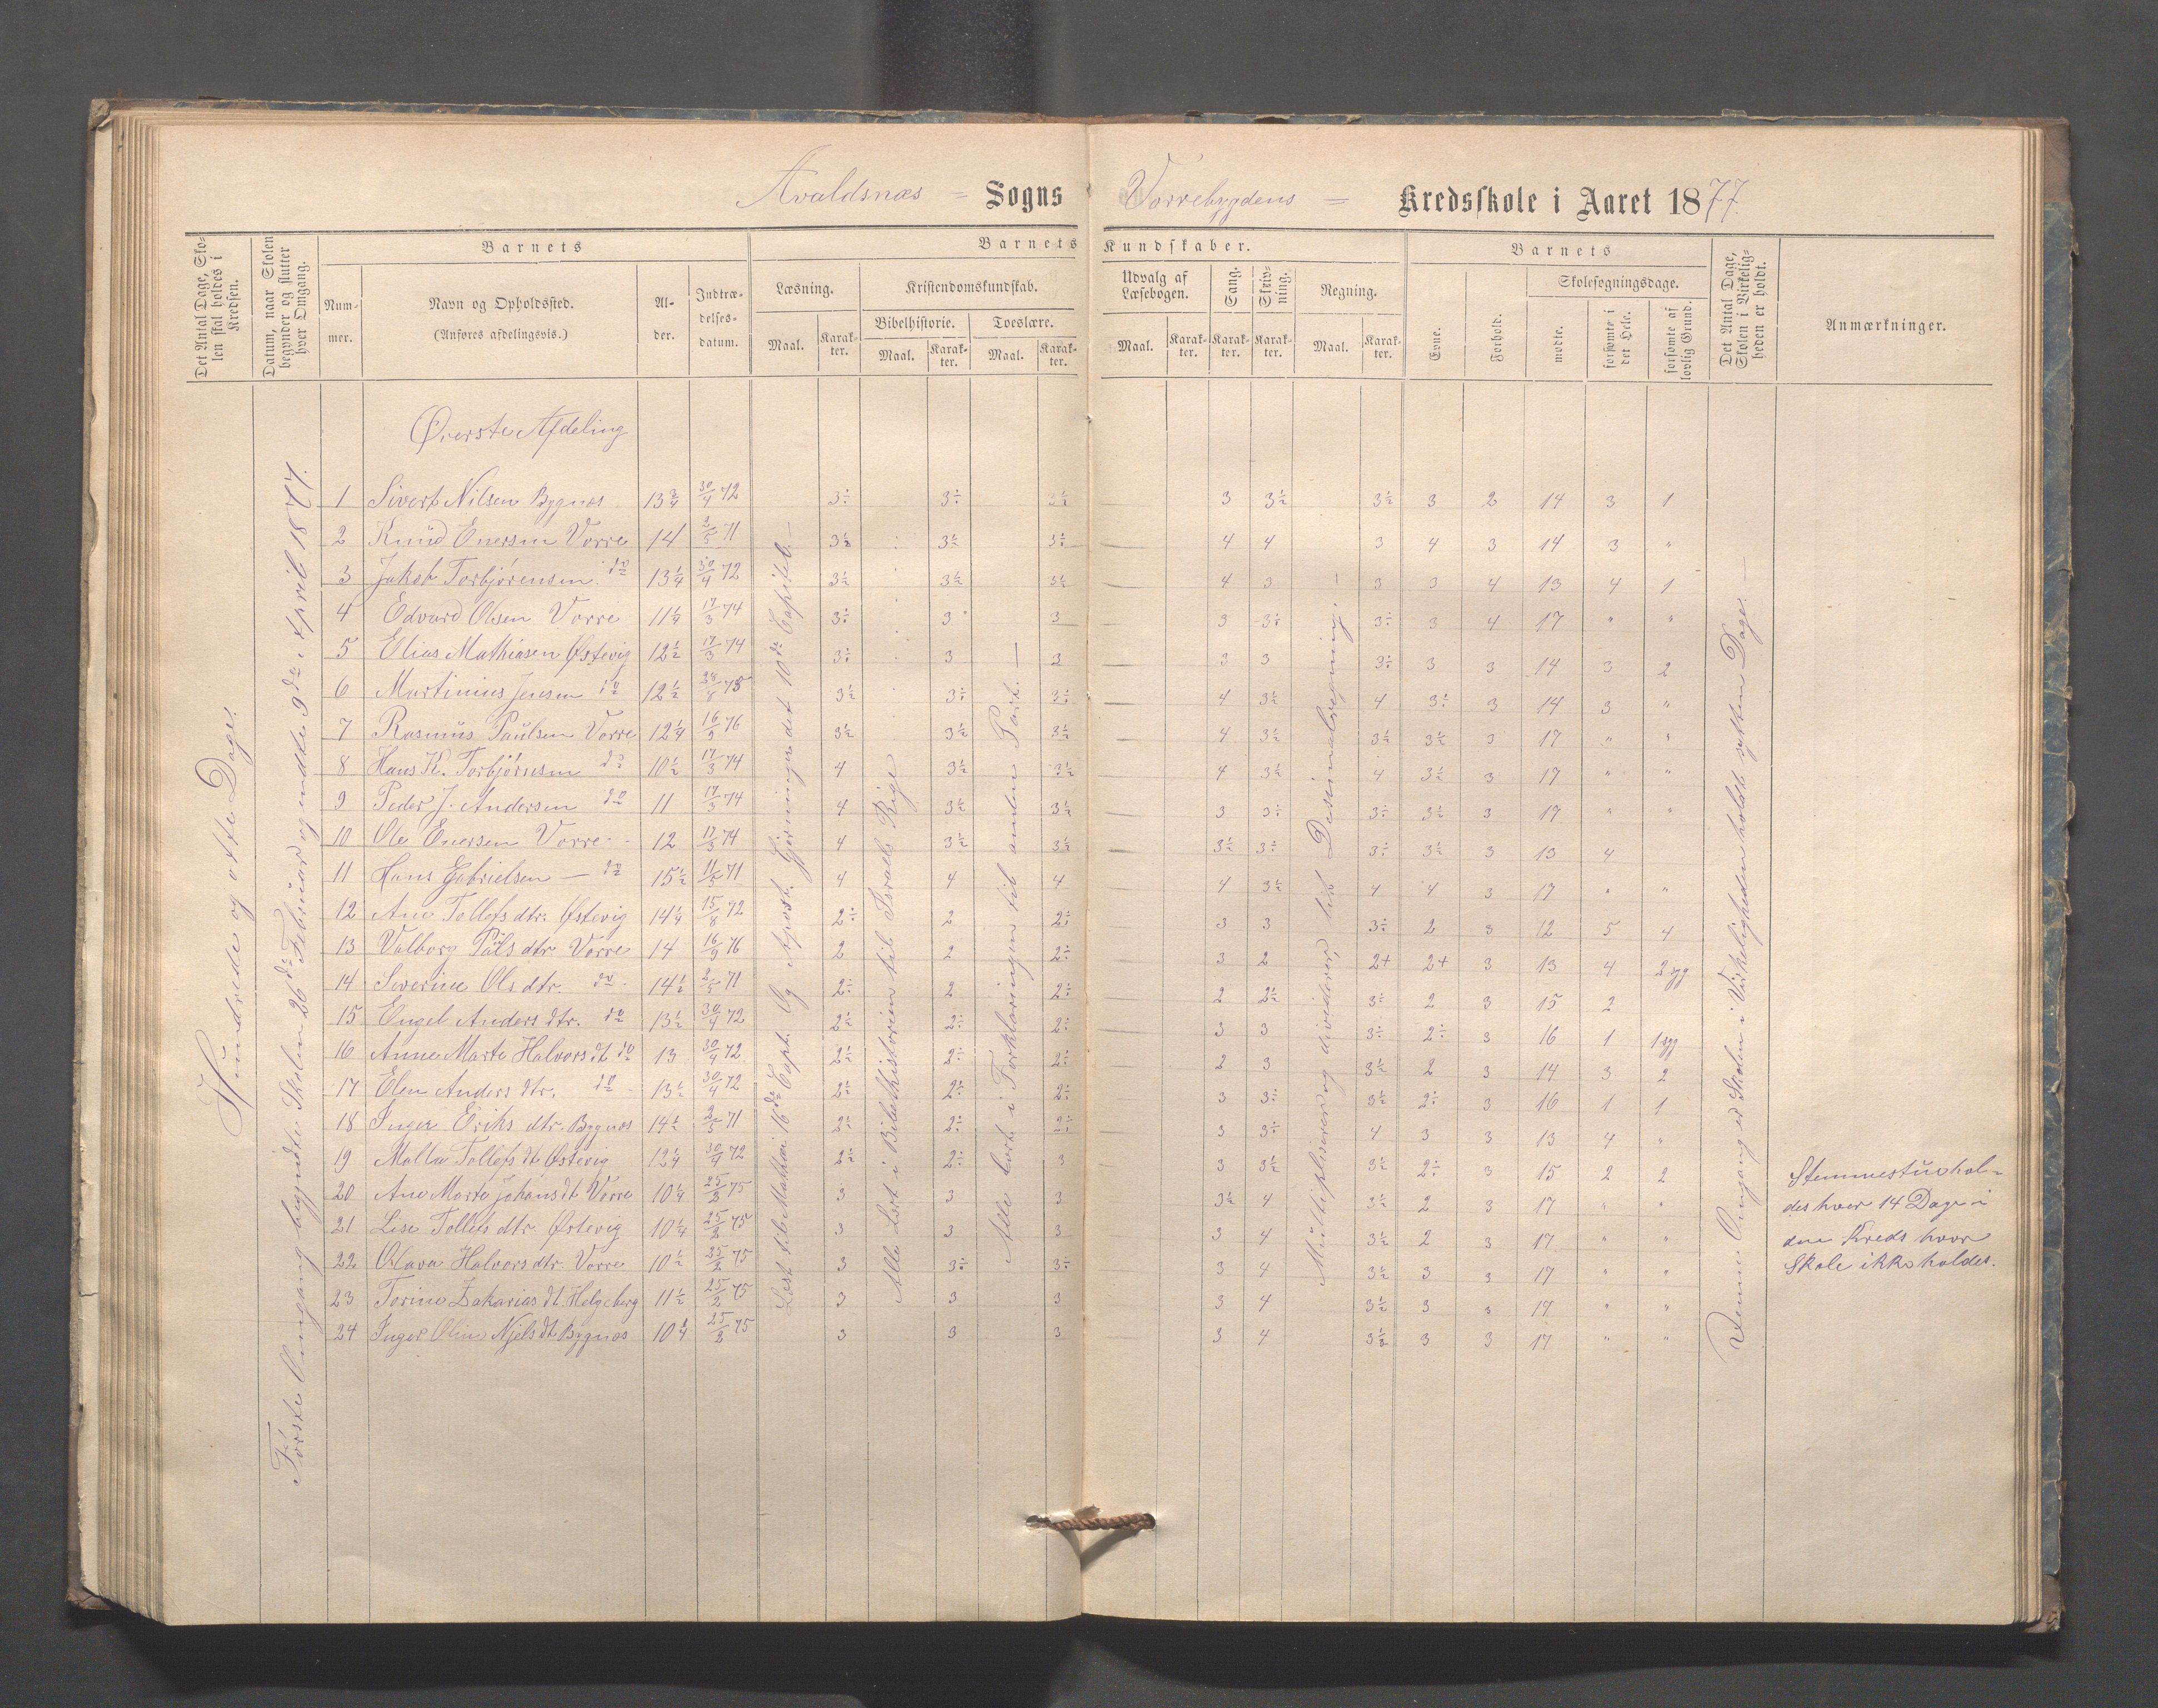 Avaldsnæs = Sogns Vorrebygdens = Kredsskole i Aaret 1877.
Det Antal Dage, Skolen skal holdes i Kredsen.
Datum, naar Skolen begynder og slutter hver Omgang.
Barnets
Nummer.
Navn og Opholdssted.
(Anføres afdelingsvis.)
Alder.
Indtrædelsesdatum.
Barnets Kundskaber.
Læsning.
Maal. Karakter.
Kristendomskundskab.
Bibelhistorie.
Maal. Karakter.
Troeslære.
Maal. Karakter.
Udvalg af Læsebogen.
Maal. Karakter.
Sang.
Karakter.
Skrivning.
Karakter.
Regning.
Maal. Karakter.
Barnets
Evne.
Forhold.
Skolesøgningsdage.
mødte.
forsømte i det Hele.
forsømte af lovlig Grund.
Det Antal Dage, Skolen i Virkeligheden er holdt.
Anmærkninger.
Hundrede og otte Dage.
Første Omgang begyndte Skolen 26de Februar og endte 9de April 1877.
Øverste Afdeling
1 Sivert Nilsen Bygnes 13 3/4 30/4 72 3÷ 3÷ 3½ 3 3½ 3½ 3 2 14 3 1
2 Knud Enersen Vorre 14 2/5 71 3½ 3½ 3÷ 4 4 3 4 3 14 3 "
3 Jakob Torbjørensen do 13¼ 30/4 72 3½ 3½ 3½ 4 3 3 3 4 13 4 1
4 Edvard Olsen Vorre 11¼ 17/3 74 3÷ 3 3 3 3÷ 3÷ 3 4 17 " "
5 Elias Mathiasen Østevig 12½ 17/3 74 3÷ 3 3 3 3 3÷ 3 3 14 3 2
6 Martinius Jensen do 12½ 28/8 75 3½ 3÷ 3÷ 4 3½ 4 3÷ 3 14 3 "
7 Rasmus Paulsen Vorre 12¼ 16/9 76 3½ 3½ 3½ 4 3½ 3½ 3½ 3 17 " "
8 Hans K. Torbjørnsen do 10½ 17/3 74 4 3½ 3½ 4 3½ 4 3½ 3 17 " "
9 Peder J. Andersen do 11 17/3 74 4 3½ 3½ 3 3÷ 3÷ 3½ 3 17 " "
10 Ole Enersen Vorre 12 17/3 74 4 3½ 3½ 3½ 3÷ 3÷ 3½ 3 13 4
11 Hans Gabrielsen — do 15½ 11/5 71 4 4 4 4 3½ 4 4 3 17 " "
12 Ane Tollefs dtr. Østevig 14¼ 15/8 72 2÷ 2 2÷ 3 3 3÷ 2 3 12 5 4
13 Valborg Påls dtr. Vorre 14 16/9 76 2 2 2÷ 3 2 2+ 2+ 3 13 4 2 syg
14 Severine Ols dtr. do 14½ 2/5 71 2÷ 2 2÷ 2 2½ 3÷ 2 3 15 2
15 Engel Anders dtr. do 13½ 30/4 72 2½ 2÷ 2÷ 3 3 3÷ 2÷ 3 16 1 1 syg
16 Anne Marte Halvors dt do 13 30/4 72 2½ 2÷ 2÷ 2 3 3½ 2 3 14 3 2
17 Elen Anders dtr. do 13½ 30/4 72 2½ 2½ 2÷ 3 3÷ 3½ 2÷ 3 16 1 1
18 Inger Eriks dtr. Bygnes 14½ 2/5 71 2½ 2÷ 2÷ 3 3÷ 4 3 3 13 4 "
19 Malla Tollefs dt Østevig 12¼ 30/4 72 2½ 2÷ 3 3 3½ 3½ 2÷ 3 15 2 2
20 Ane Marte Johans dt Vorre 10¼ 25/2 75 3 3 3 3½ 4 3½ 2 3 17 " "
21 Lise Tollefs dtr. Østevig 10¼ 25/2 75 3 3 3 3 4 3½ 2 3 17 " "
22 Olava Halvors dtr. Vorre 10½ 25/2 75 3 3÷ 3÷ 3 4 3½ 3 3 17 " "
23 Torine Zakarias dt. Helgeberg 11½ 25/2 75 3 3 3 3 4 3½ 3 3 17 " "
24 Inger Oline Njels dt Bygnes 10¼ 25/2 75 3 3 3 3 4 3½ 3 3 17 " "
Læst fra Mathæi 16de Capt. Og Apost. Gjerninger det 10de Capitel. —
Alle Lært i Bibelhistorien til Israels Rige
Alle lært i Forklaringen til anden Part. —
Multipliserer og dividerer, lidt Desimalregning. —
Denne Omgang er Skolen i Virkeligheden holdt sytten Dage. —
Stemmestue hol-
des hver 14 Dage i
den Kreds hvor
Skole ikke holdes.